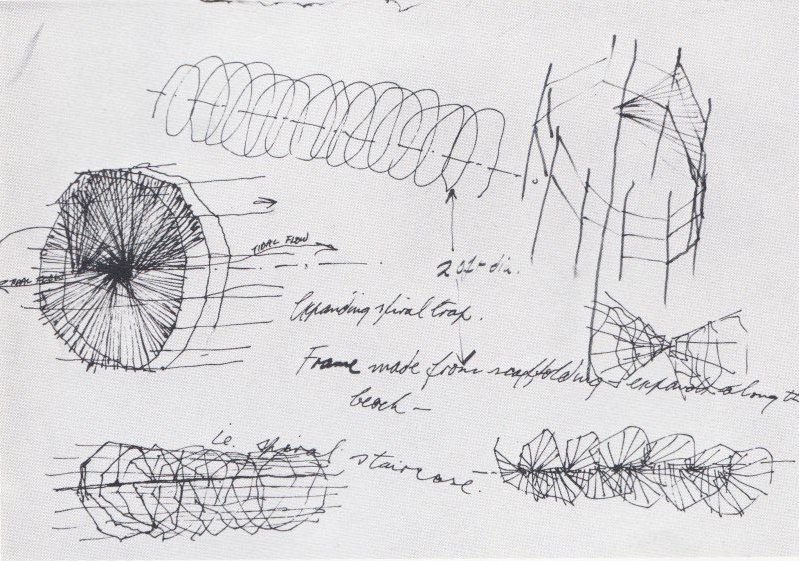 TIDAL FLOW
TIDAL FLOW
dia.
Expanding spiral trap.
Frame made from scaffolding & expanded along the
beach —
i.e. spiral staircase.